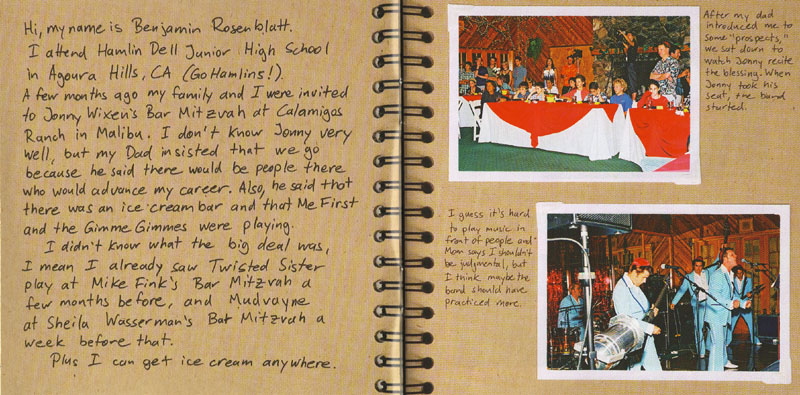 Hi, my name is Benjamin Rosenblatt.
I attend Hamlin Dell Junior High School
in Agoura Hills, CA (Go Hamlins!).
A few months ago my family and I were invited
to Jonny Wixen's Bar Mitzvah at Calamigos
Ranch in Malibu. I don't know Jonny very
well, but my Dad insisted that we go
because he said there would be people there
who would advance my career. Also, he said that
there was an ice cream bar and that Me First
and the Gimme Gimmes were playing.
I didn't know what the big deal was,
I mean I already saw Twisted Sister
play at Mike Fink's Bar Mitzvah a
few months before, and Mudvayne
at Sheila Wasserman's Bat Mitzvah a
week before that.
Plus I can get ice cream anywhere.
After my dad
introduced me to
some "prospects,"
we sat down to
watch Jonny recite
the blessing. When
Jonny took his
seat, the band
started.
I guess it's hard
to play music in
front of people and
Mom says I shouldn't
be judgmental, but
I think maybe the
band should have
practiced more.